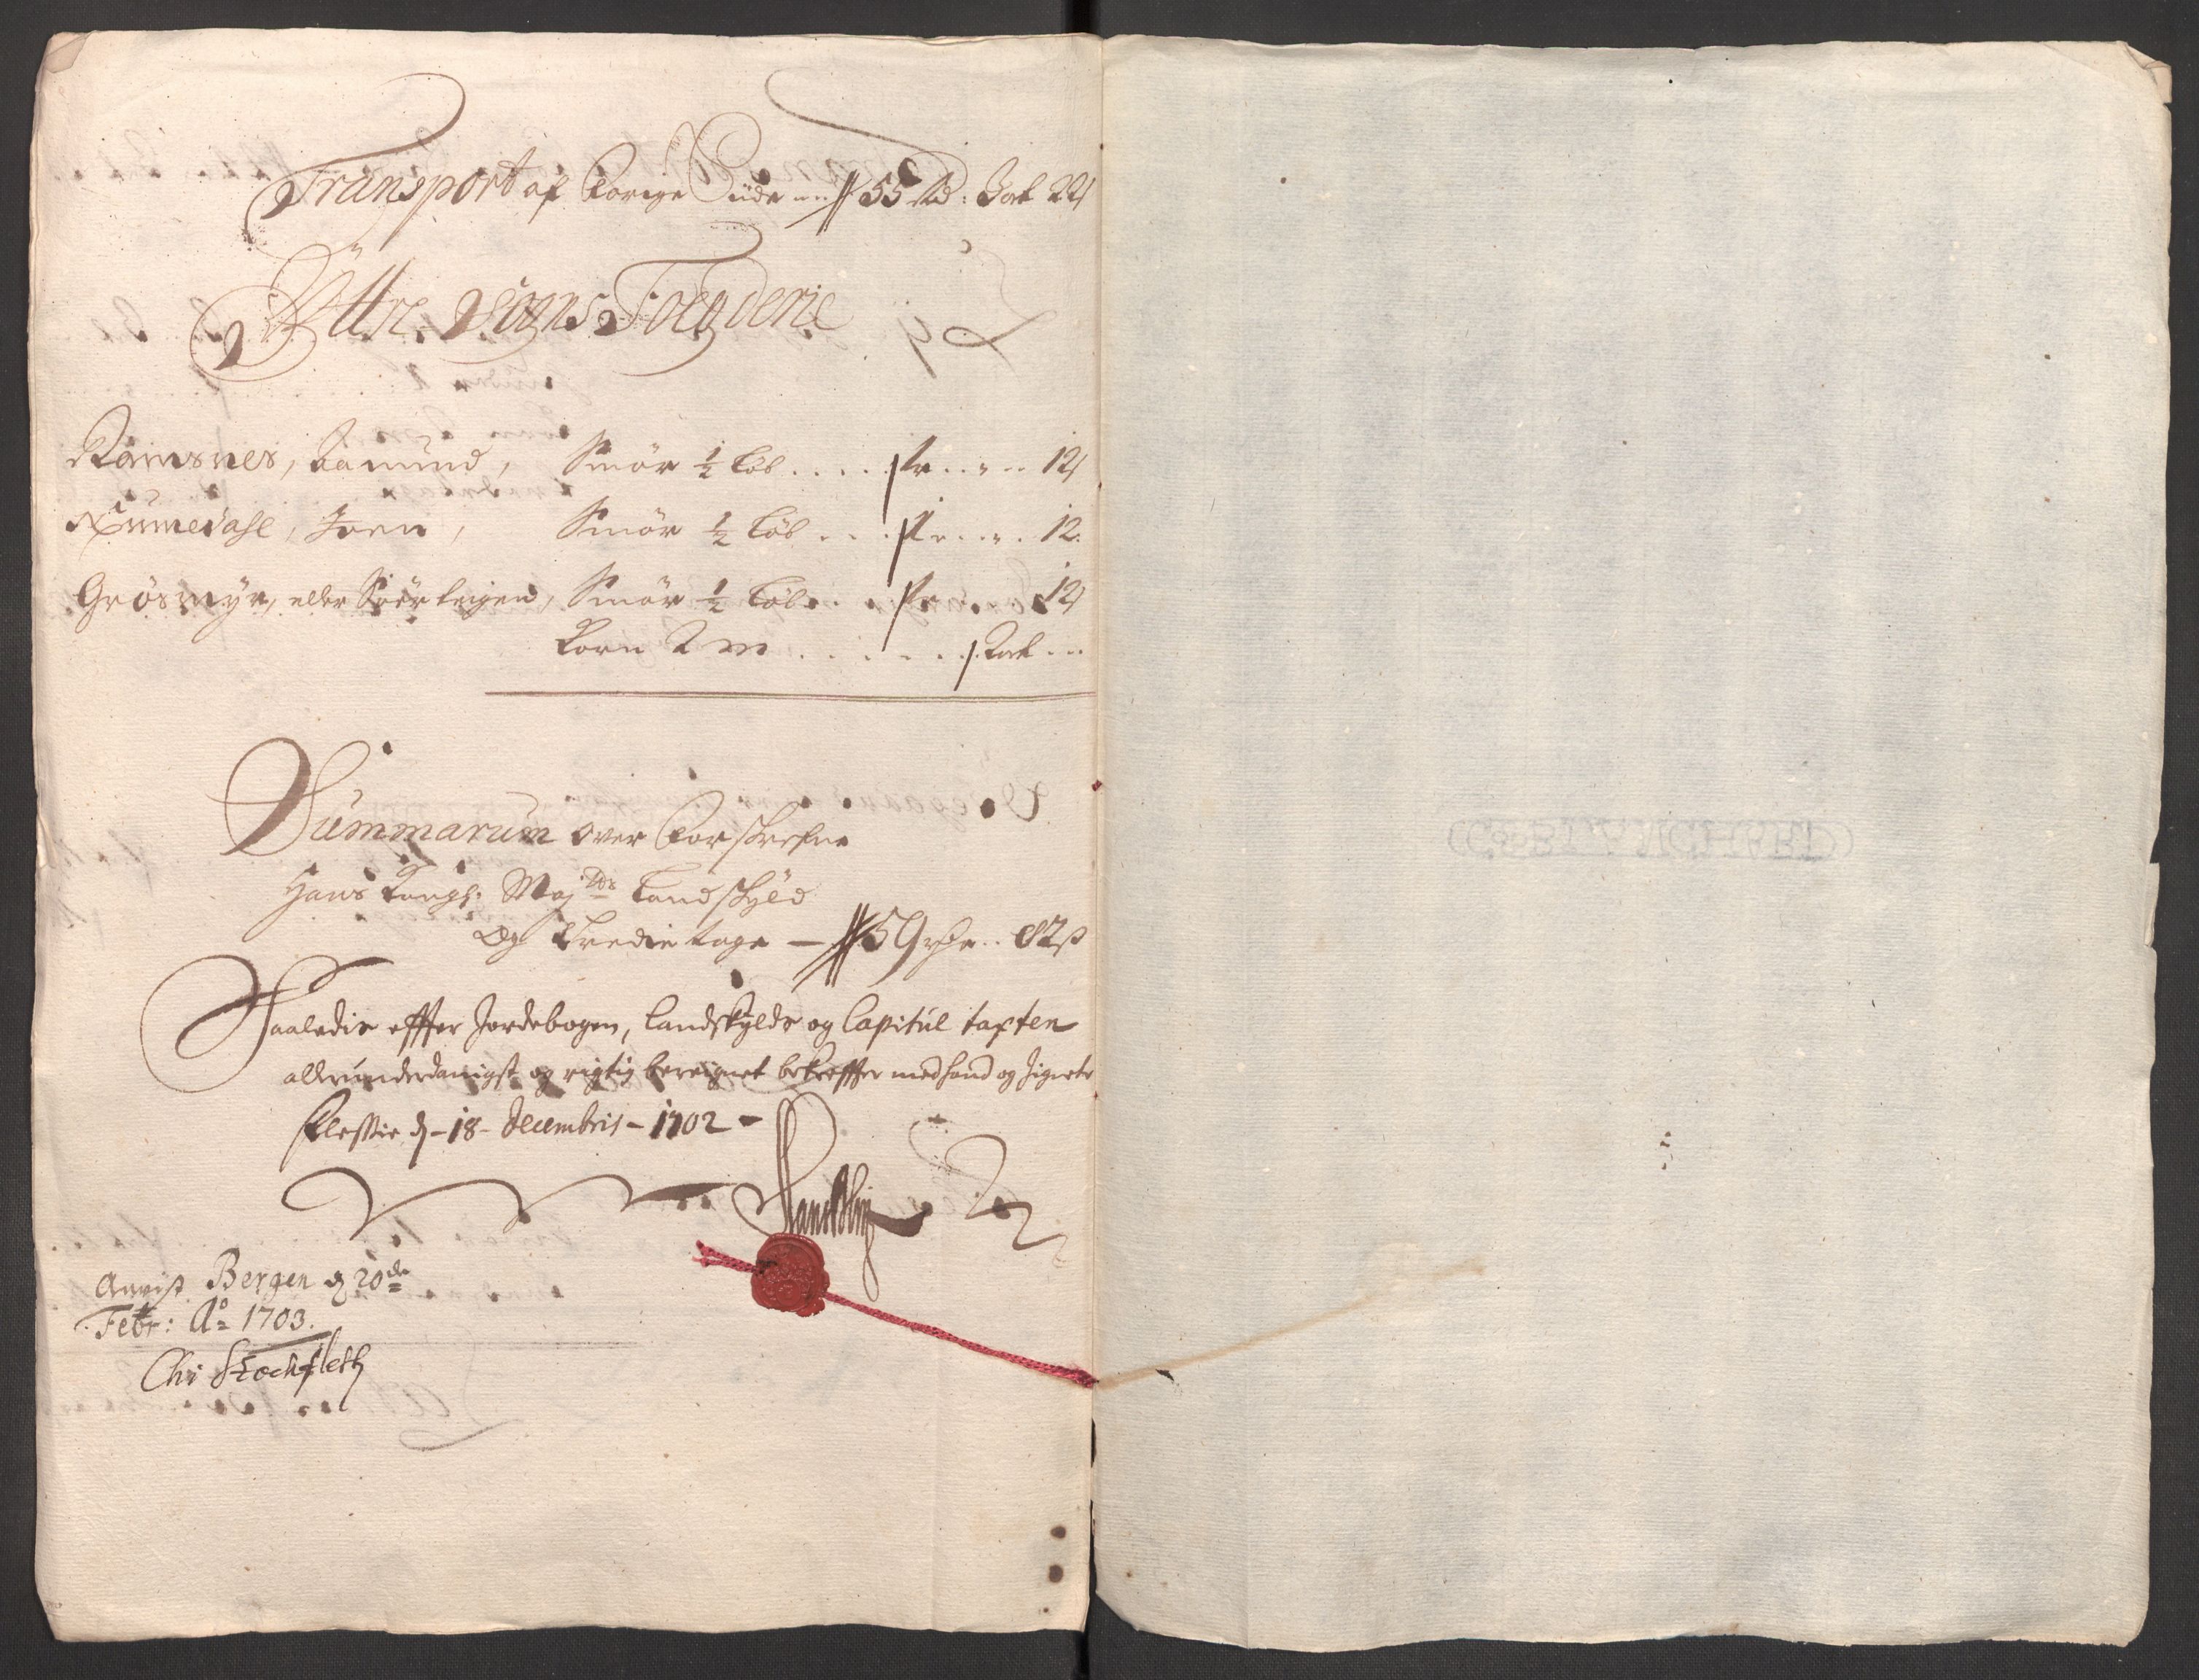 Transport af Forige Side 55 Rd: 3ort 22ß
Yttre Sogns Fogderie
Ramsnes, Aamund, Smör ½ Løb . . . . 12ß
Numedahl, Joen, Smör ½ Løb . . . 12.
Grösmyr, eller Sørteigen, Smör ½ Løb . . 12ß
Korn 2 m . . . . . .
Summarum over Forskrefne
Hans Kongl: Maj:ts Landskyld
Og Tredie tage — 59 rdr .. 82ß
Saaledis effter Jordebogen, Landskylds og Capitül taxten
allerunderdanigst og rigtig beregnet bekreffter med haand og Zignete
d - 18 - Decembris - 1702 -
Anvist Bergen d 20de
Febr: Ao 1703.
Chr Stockfleth